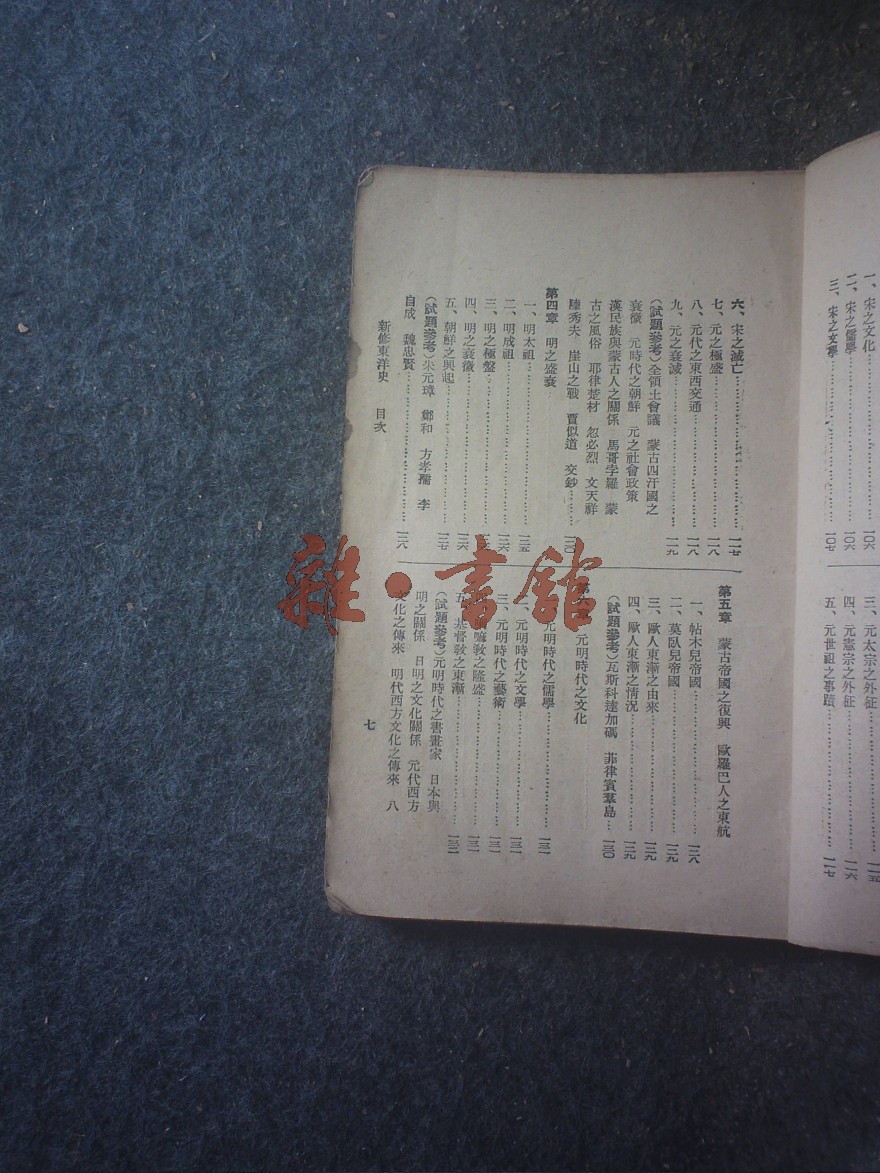 一、宋之文化……一〇六
二、宋之儒學……一〇六
三、宋之文學……一〇七
三、元太宗之外征……一一五
四、元憲宗之外征……一一六
五、元世祖之事蹟……一一七
六、宋之滅亡……一一七
七、元之極盛……一一八
八、元代之東西交通……一一八
九、元之衰滅……一一九
(試題參考)全領土會議 蒙古四汗國之
衰微 元時代之朝鮮 元之社會政策
漢民族與蒙古人之關係 馬哥孛羅 蒙
古之風俗 耶律楚材 忽必烈 文天祥
陸秀夫 崖山之戰 賈似道 交鈔……一二〇
第四章 明之盛衰
一、明太祖……一二五
二、明成祖……一二六
三、明之極盤
四、明之衰微……一二六
五、朝鮮之興起……一二七
(試題參考)朱元璋 鄭和 方孝孺 李
自成 魏忠賢……一二八
第五章 蒙古帝國之復興 歐羅巴人之東航
一、帖木兒帝國……一二八
二、莫臥兒帝國……一二九
三、歐人東漸之由來……一二九
四、歐人東漸之情況……一二九
(試題參考)瓦斯科達加碼 菲律賓羣島…一三〇
元明時代之文化
元明時代之儒學……一三一
二、元明時代之文學……一三一
三、元明時代之藝術……一三一
喇嘛教之隆盛……一三一
五、基督教之東漸……一三二
(試題參考)元明時代之書畫家 日本與
明之關係 日明之文化關係 元代西方
文化之傳來 明代西方文化之傳來 八
新修東洋史 目次
七
雜·書館